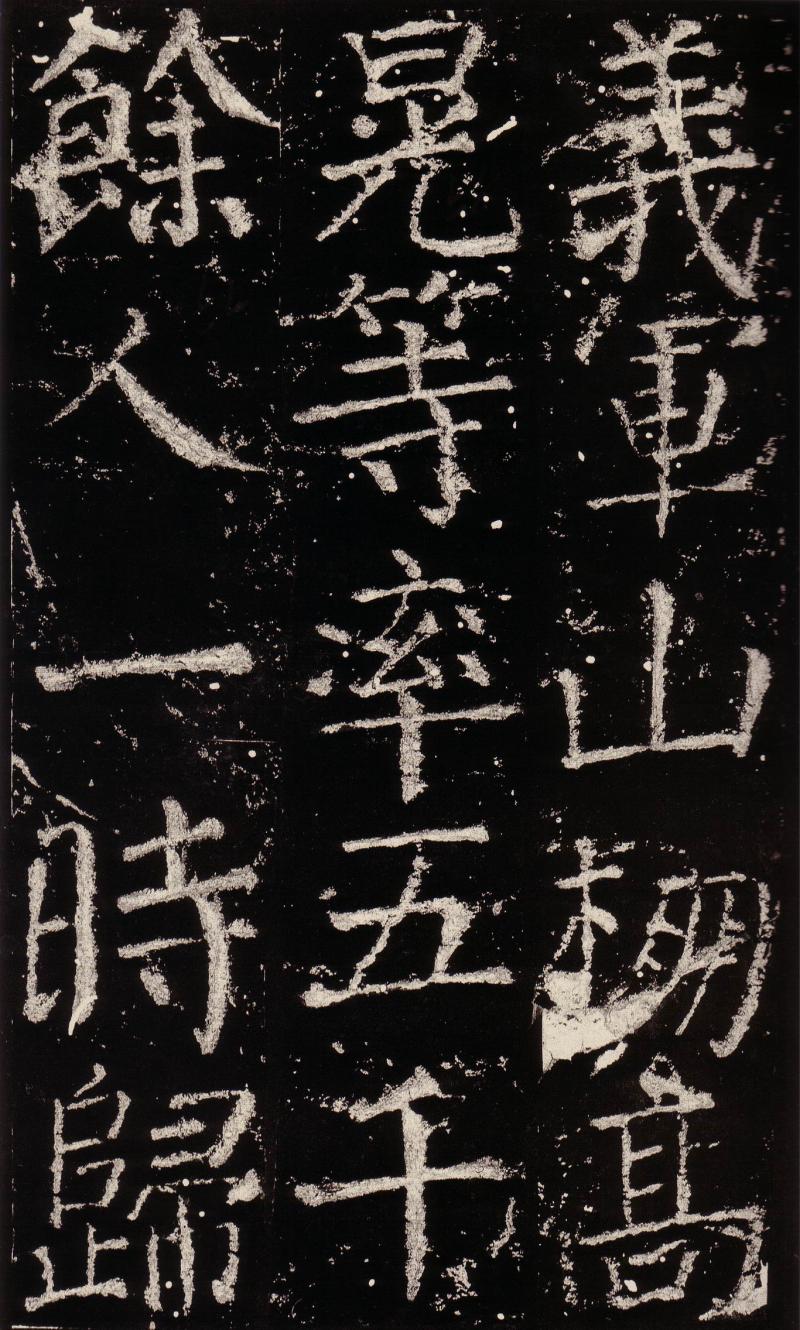 義軍山栅髙
晃等率五千
餘人一時歸